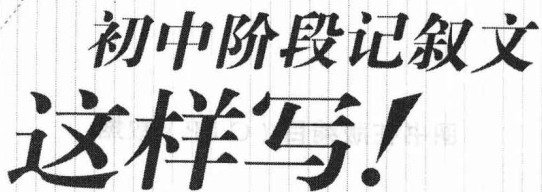 初中阶段记叙文
这样写！